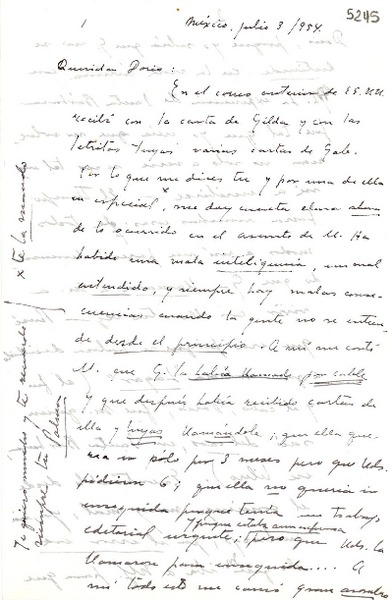 1
México, julio 3/954.
5245
Querida Doris:
En el correo anterior de EE.UU.
recibí con la carta de Gilda y con las
letritas tuyas varias cartas de Gabi.
Por lo que me dices tú y por una de ella
en especial x, me doy cuenta clara ahora
de lo ocurrido en el asunto de M. Ha
habido una mala inteligencia, un mal
entendido, y siempre hay malas conse
cuencias cuando la gente no se entien
de desde el principio. A mí me contó
M. que G. la había llamado por cable
y que después había recibido cartas de
ella y tuyas llamándole; que ella que
ría ir sólo por 3 meses pero que Uds.
pidieron 6; que ella no quería ir
enseguida porque tenía un trabajo
y porque estaba aún enferma
editorial urgente; pero que Uds. la
llamaron para enseguida.... A
mí todo esto me causó gran asombro
x te la mando
Te quiero mucho y te recuerdo
siempre, tu Palma